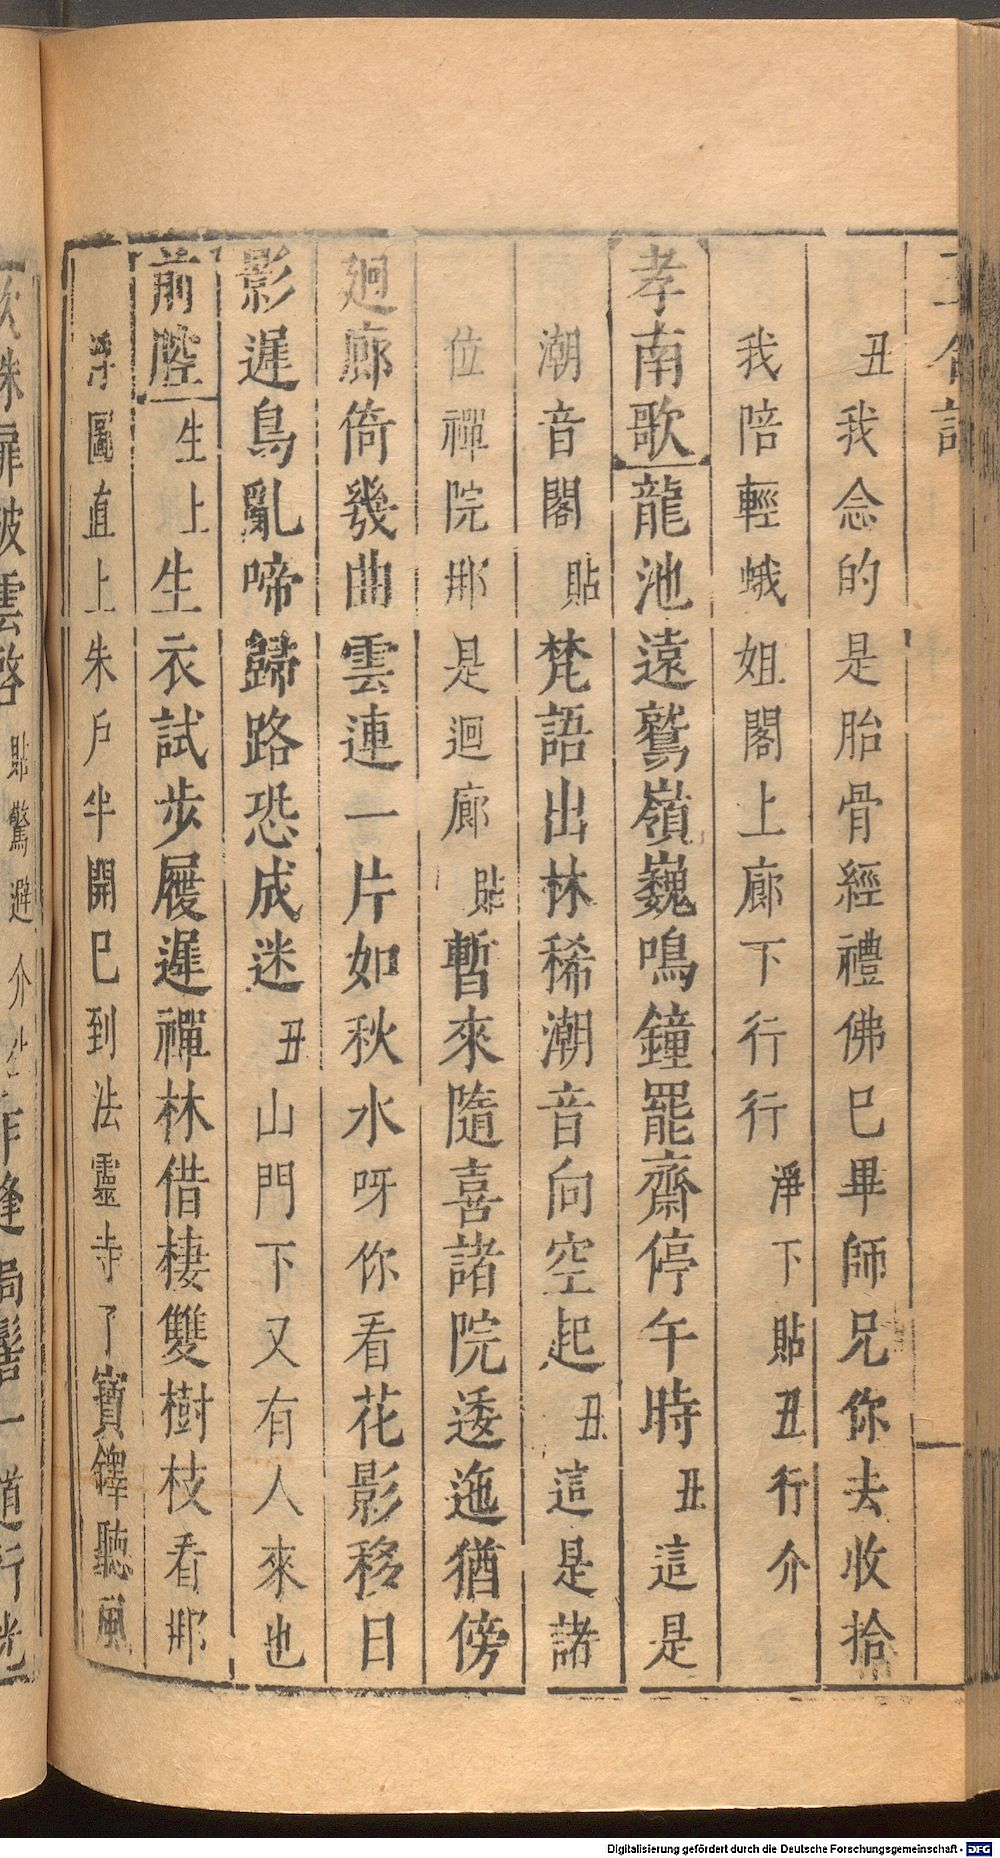 丑我念的是胎骨經禮佛巳畢師兄你去收拾
我陪輕蛾姐閣上廊下行行淨下貼丑行介
孝南歌龍池遠鷲嶺巍鳴鐘罷齋停午時丑這是
潮音閣貼梵語出林稀潮音向空起丑這是諸
位禪院那是迴廊貼暫來隨喜諸院逶迤猶傍
廻廊倚幾曲雲連一片如秋水呀你看花影移日
影遲鳥亂啼歸路恐成迷丑山門下又有人來也
前腔生上生衣試步屨遲禪林借棲雙樹枝看那
浮圖直上朱戶半開巳到法靈寺了寶鐸聽風
貼驚避介
一道行
Digitalisierung gefördert durch die Deutsche Forschungsgemeinschaft - DFG